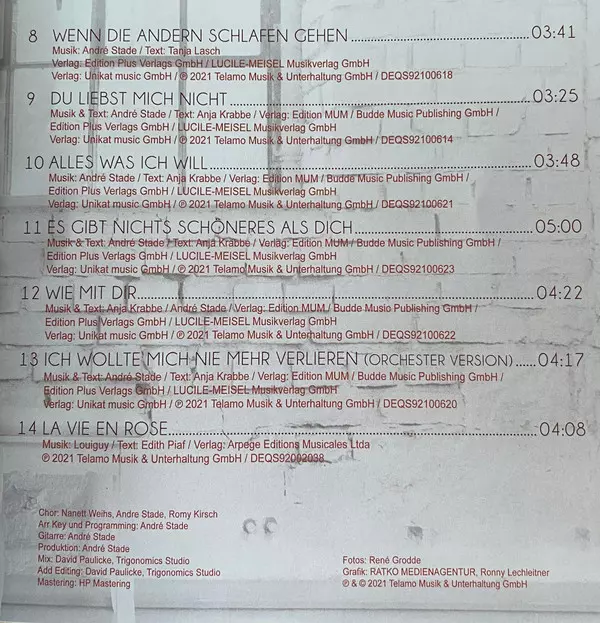 8 WENN DIE ANDERN SCHLAFEN GEHEN 03:41
Musik: André Stade / Text: Tanja Lasch
Verlag: Edition Plus Verlags GmbH / LUCILE-MEISEL Musikverlag GmbH
Verlag: Unikat music GmbH / ℗ 2021 Telamo Musik & Unterhaltung GmbH / DEQS92100618
9 DU LIEBST MICH NICHT 03:25
Musik & Text: André Stade / Text: Anja Krabbe / Verlag: Edition MUM / Budde Music Publishing GmbH /
Edition Plus Verlags GmbH / LUCILE-MEISEL Musikverlag GmbH
Verlag: Unikat music GmbH / ℗ 2021 Telamo Musik & Unterhaltung GmbH / DEQS92100614
10 ALLES WAS ICH WILL 03:48
Musik: André Stade / Text: Anja Krabbe / Verlag: Edition MUM / Budde Music Publishing GmbH /
Edition Plus Verlags GmbH / LUCILE-MEISEL Musikverlag GmbH
Verlag: Unikat music GmbH / ℗ 2021 Telamo Musik & Unterhaltung GmbH / DEQS92100621
11 ES GIBT NICHTS SCHÖNERES ALS DICH 05:00
Musik & Text: André Stade / Text: Anja Krabbe / Verlag: Edition MUM / Budde Music Publishing GmbH /
Edition Plus Verlags GmbH / LUCILE-MEISEL Musikverlag GmbH
Verlag: Unikat music GmbH / ℗ 2021 Telamo Musik & Unterhaltung GmbH / DEQS92100623
12 WIE MIT DIR 04:22
Musik & Text: Anja Krabbe / André Stade / Verlag: Edition MUM / Budde Music Publishing GmbH /
Edition Plus Verlags GmbH / LUCILE-MEISEL Musikverlag GmbH
Verlag: Unikat music GmbH / ℗ 2021 Telamo Musik & Unterhaltung GmbH / DEQS92100622
13 ICH WOLLTE MICH NIE MEHR VERLIEREN (ORCHESTER VERSION) 04:17
Musik & Text: André Stade / Text: Anja Krabbe / Verlag: Edition MUM / Budde Music Publishing GmbH /
Edition Plus Verlags GmbH / LUCILE-MEISEL Musikverlag GmbH
Verlag: Unikat music GmbH / ℗ 2021 Telamo Musik & Unterhaltung GmbH / DEQS92100620
14 LA VIE EN ROSE 04:08
Musik: Louiguy / Text: Edith Piaf / Verlag: Arpege Editions Musicales Ltda
℗ 2021 Telamo Musik & Unterhaltung GmbH / DEQS92002038
Chor: Nanett Weihs, Andre Stade, Romy Kirsch
Arr Key und Programming: André Stade
Gitarre: André Stade
Produktion: André Stade
Mix: David Paulicke, Trigonomics Studio
Add Editing: David Paulicke, Trigonomics Studio
Mastering: HP Mastering
Fotos: René Grodde
Grafik: RATKO MEDIENAGENTUR, Ronny Lechleitner
℗ & © 2021 Telamo Musik & Unterhaltung GmbH